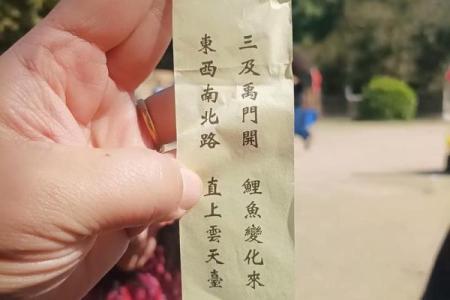 三及禹門開　鯉魚變化來
東西南北路　直上雲天臺